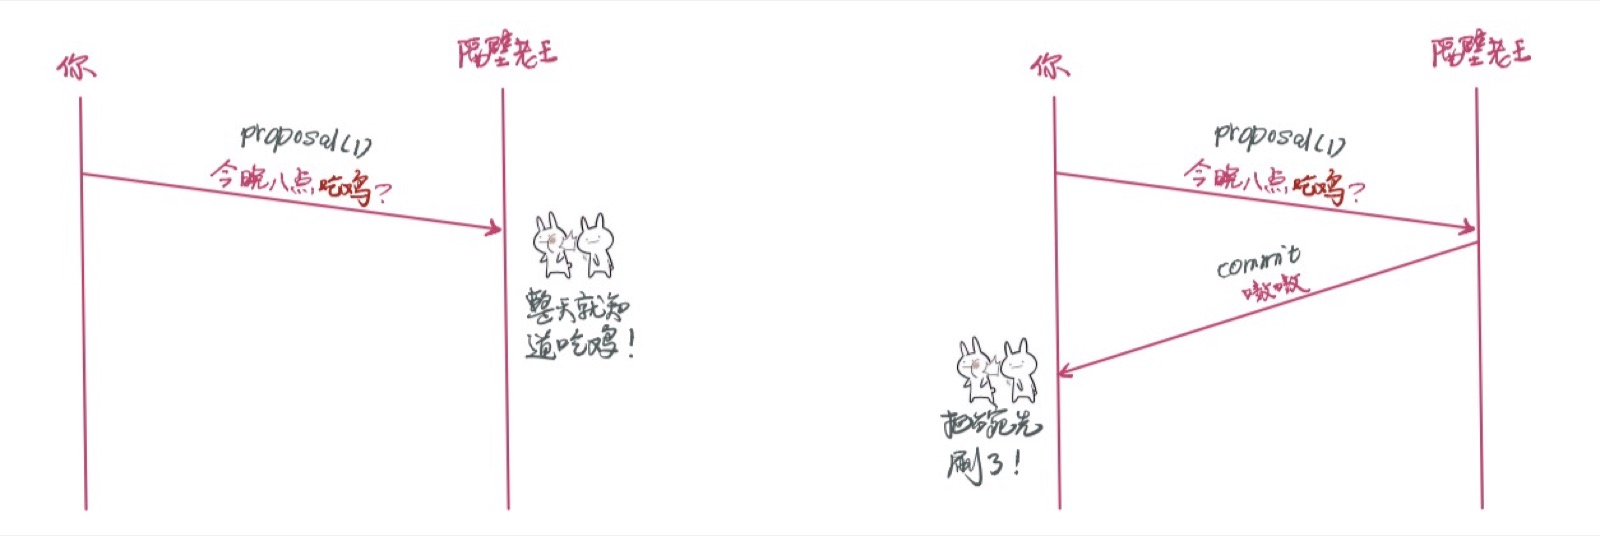 你
隔壁老王
proposal(1)
今晚八点,吃鸡?
整天就知
道吃鸡!
你
隔壁老王
proposal(1)
今晚八点,吃鸡?
commit
嗷嗷
把碗先
刷了!